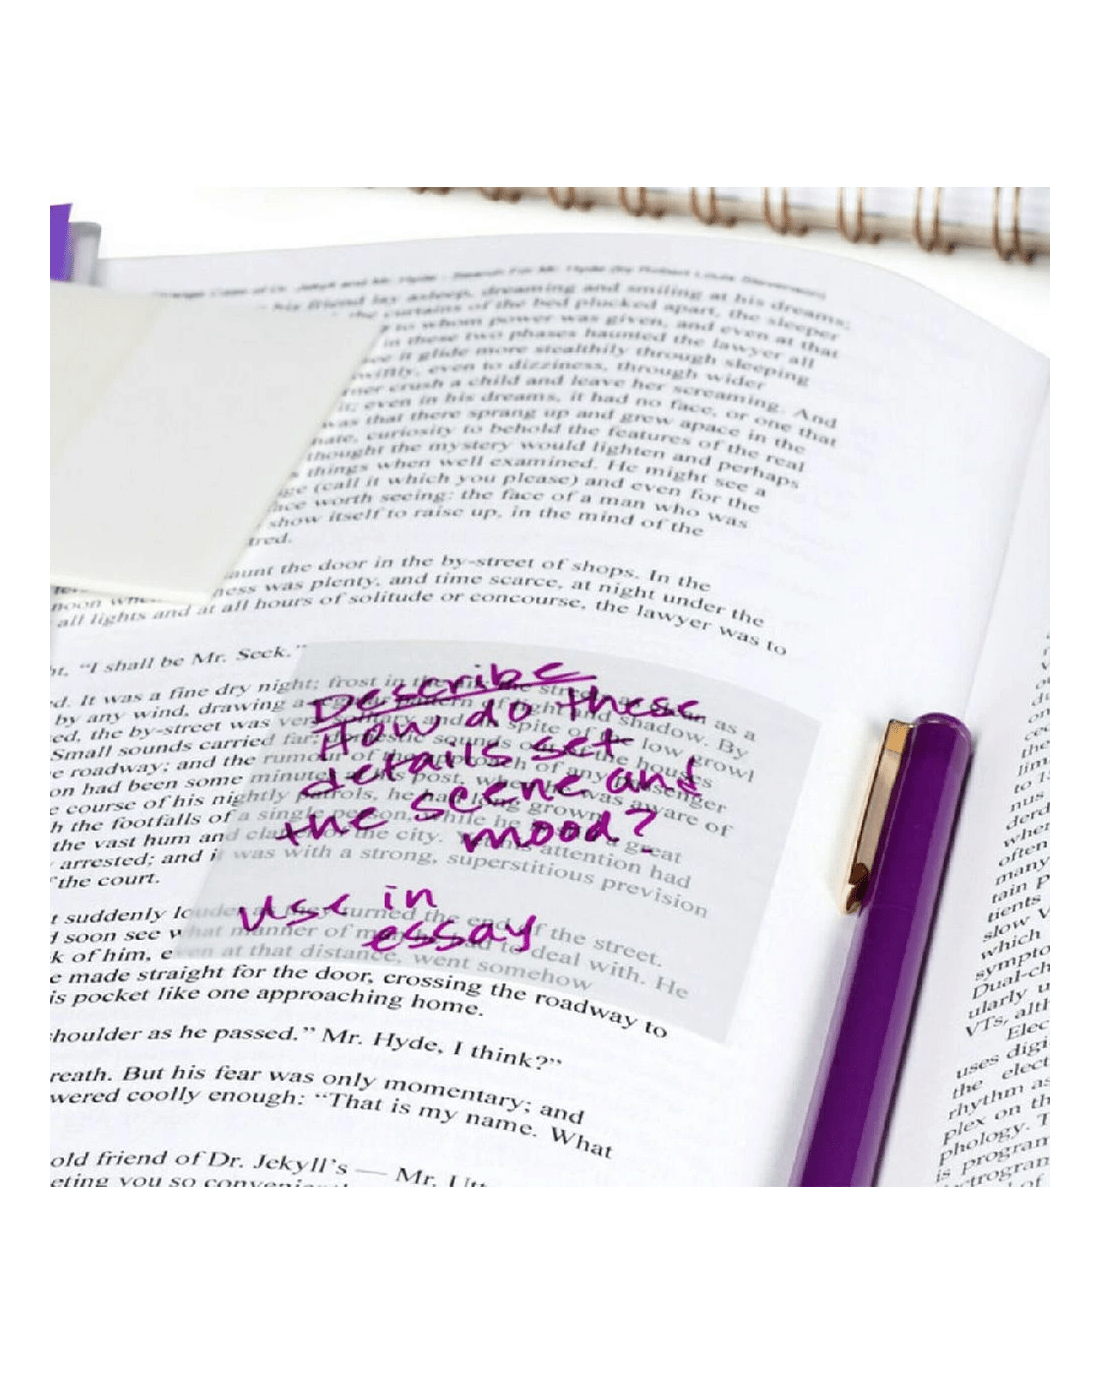 Strange Case of Dr. Jekyll and Mr. Hyde - Search For Mr. Hyde (by Robert Louis Stevenson)
his friend lay asleep, dreaming and smiling at his dreams;
the curtains of the bed plucked apart, the sleeper
to whom power was given, and even at that
in these two phases haunted the lawyer all
see it glide more stealthily through sleeping
swiftly, even to dizziness, through wider
ner crush a child and leave her screaming. And
it; even in his dreams, it had no face, or one that
was that there sprang up and grew apace in the
nate, curiosity to behold the features of the real
thought the mystery would lighten and perhaps
things when well examined. He might see a
ge (call it which you please) and even for the
face worth seeing: the face of a man who was
show itself to raise up, in the mind of the
tred.
aunt the door in the by-street of shops. In the
noon when ness was plenty, and time scarce, at night under the
all lights and at all hours of solitude or concourse, the lawyer was to
ht, "I shall be Mr. Seek."
d. It was a fine dry night; frost in the as a
by any wind, drawing a of light and shadow. By
ed, the by-street was very solitary and spite of low growl
Small sounds carried far; domestic sounds out of the houses
e roadway; and the rumour of the of any passenger
on had been some minutes at his post, when he was aware of
e course of his nightly patrols, he had long grown
h the footfalls of a single person, while he great
the vast hum and clatter of the city. attention had
arrested; and it was with a strong, superstitious prevision
f the court.
Describe
How do these
details set
the scene and
mood?
Use in
essay
t suddenly louder as they turned the end of the street.
d soon see what manner of man to deal with. He
k of him, even at that distance, went somehow
e made straight for the door, crossing the roadway to
is pocket like one approaching home.
houlder as he passed." Mr. Hyde, I think?"
reath. But his fear was only momentary; and
wered coolly enough: "That is my name. What
old friend of Dr. Jekyll's — Mr. Utt
eting you so conveni
cen
the
lim
to 1
nus
derd
when
often
many
tain p
tients
slow V
which
sympto
Dual-ch
ularly u
VTs, alth
Elec
uses digi
the elect
rhythm as
plex on th
phology. T
is program
ectrogram
of